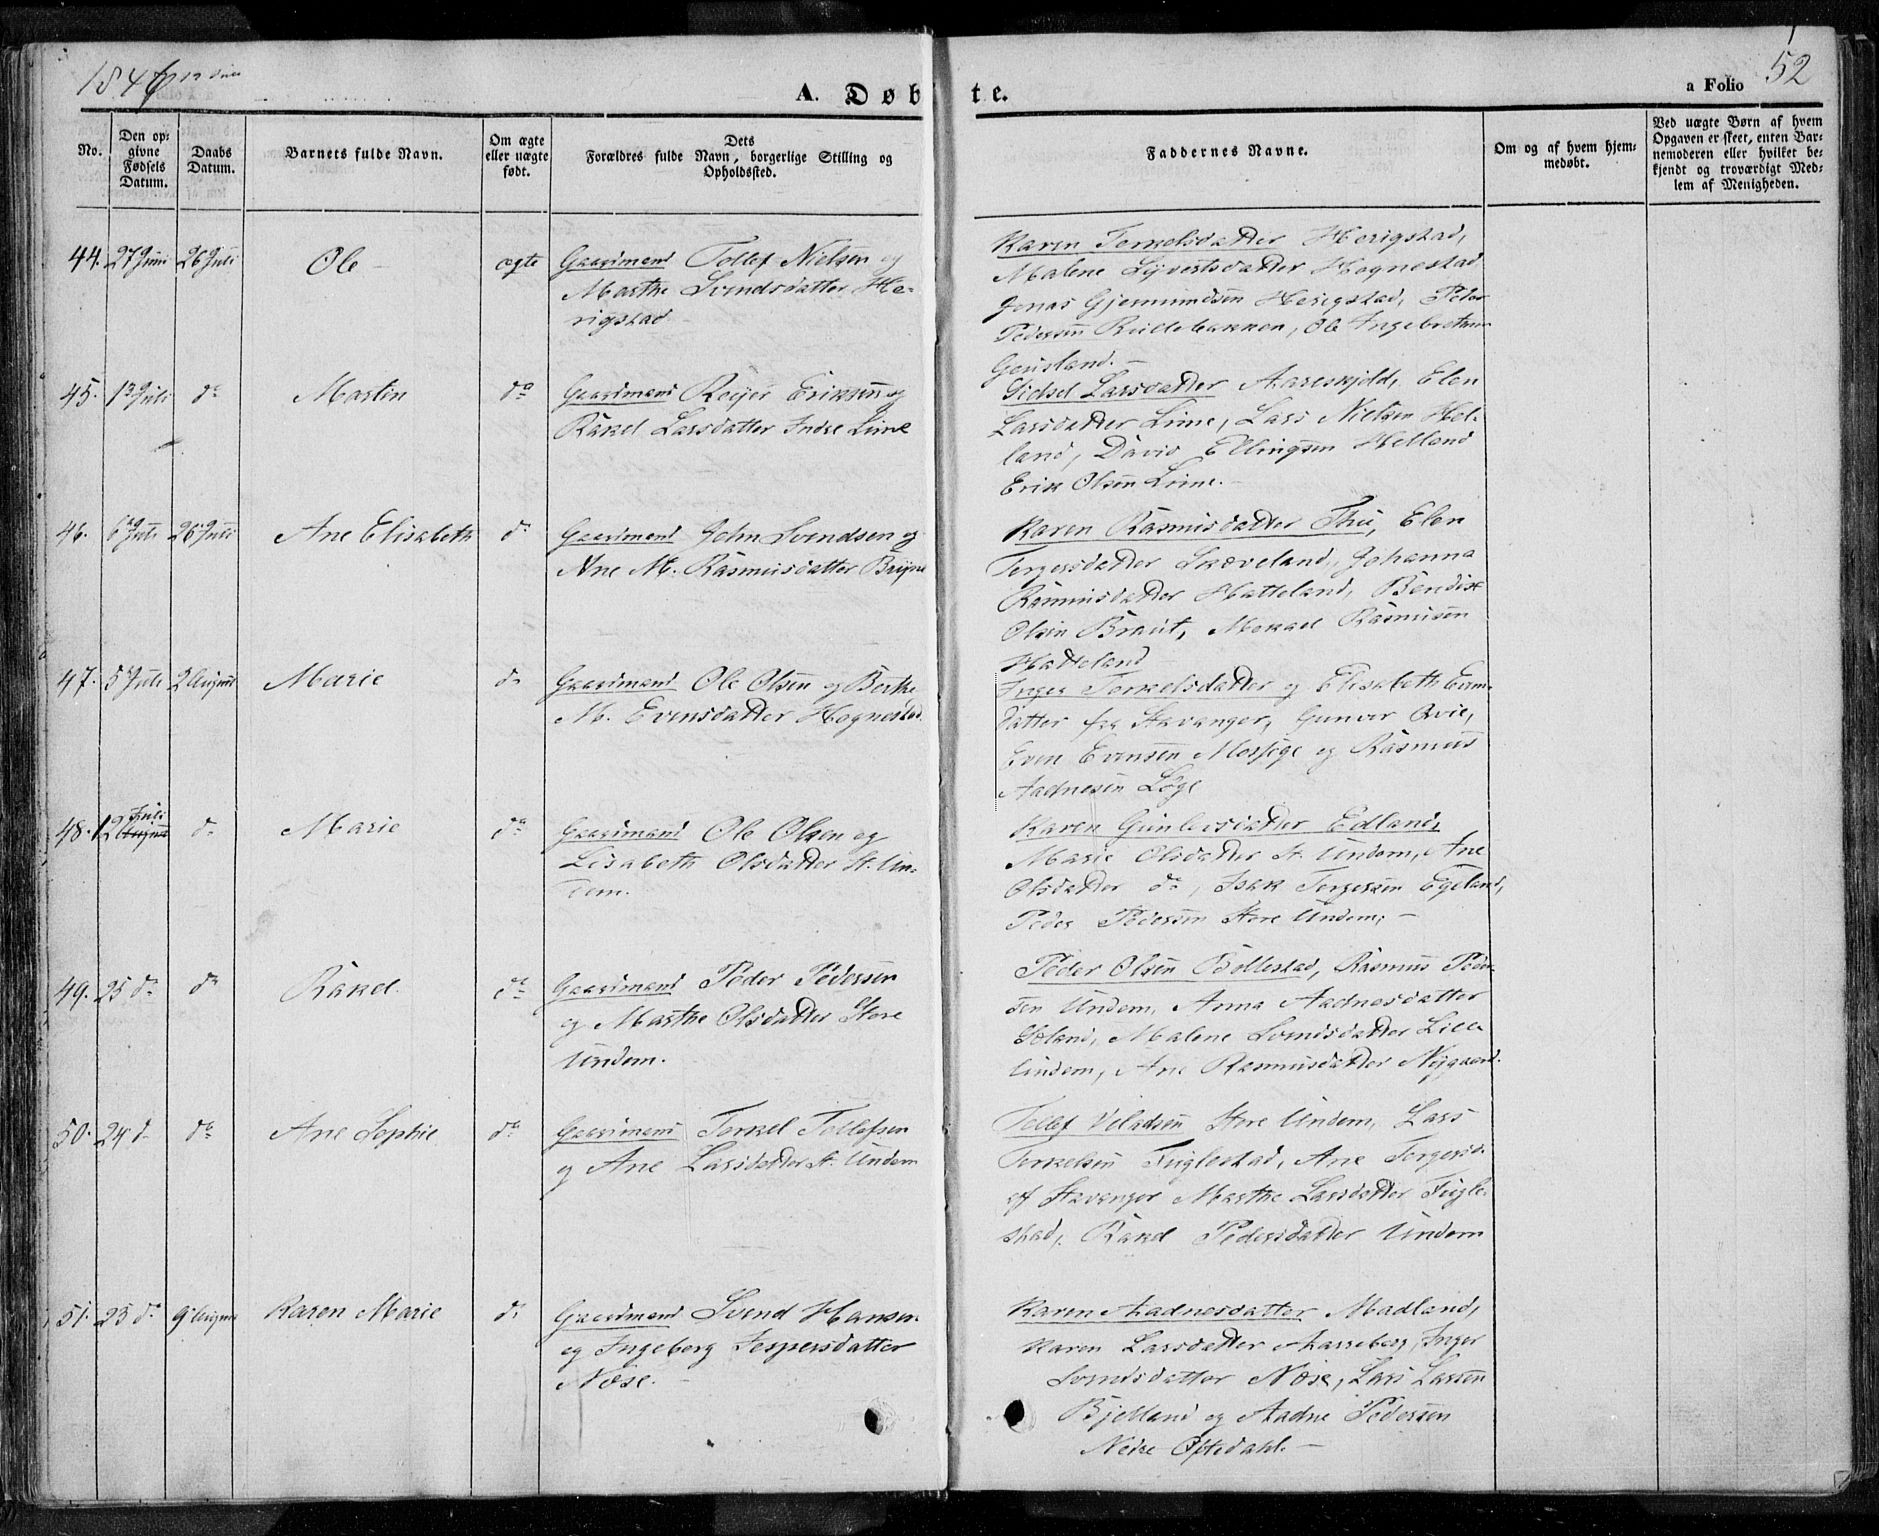 1846
A. Døbte.
a Folio 52
No.
Den op-
givne
Fødsels
Datum.
Daabs
Datum.
Barnets fulde Navn.
Om ægte
eller uægte
født.
Dets
Forældres fulde Navn, borgerlige Stilling og
Opholdssted.
Faddernes Navne.
Om og af hvem hjem-
medøbt.
Ved uægte Børn af hvem
Opgaven er skeet, enten Bar-
nemoderen eller hvilket be-
kjendt og troværdigt Med-
lem af Menigheden.
44. 27 Juni 26 Juli Ole ægte
Gaardmand Tollef Nielsen og
Marthe Svendsdatter He-
rigstad
Karen Terkelsdatter Herigstad,
Malene Syvertsdatter Hognestad
Jonas Gjermundsen Herigstad, Peder
Pedersen, Ole Ingebretsen
45. 1 Juli do Martin do
Gaardmand Reijer Eriksen og
Rakel Larsdatter Indre Lime
Sidsel Larsdatter Aareskjold, Elen
Larsdatter Lime, Lars Nielsen Hel-
land, David Ellingsen Helland
Erik Olsen Lime.
46. 6 Juli 26 Juli Ane Elisabeth do
Gaardmand John Svendsen og
Ane M. Rasmusdatter Bryne
Karen Rasmusdatter Thu, Elen
Tergersdatter Skæveland, Johanna
Rasmusdatter Hatteland, Bendix
Olsen Braut, Mikael Rasmusen
Hatteland
47. 5 Juli 2 August Marie do
Gaardmand Ole Olsen og Berthe
M. Evensdatter Hognestad
Inger Terkelsdatter og Elisabeth Evens-
datter fra Stavanger, Gunver Qvie,
Even Evensen Mossige og Rasmus
Aadnesen Løge
48. 12 Juli do Marie do
Gaardmand Ole Olsen og
Lisabeth Olsdatter St. Un-
dem.
Karen Gunlevsdatter Edland,
Marie Olsdatter St. Undem, Ane
Olsdatter do, Isak Tergersen Egeland,
Peder Pedersen Store Undem, –
49. 25 do do Rakel. do
Gaardmand Peder Pedersen
og Marthe Olsdatter Store
Undem.
Peder Olsen Bollestad, Rasmus Peder-
sen Undem, Anna Aadnesdatter
Malene Svendsdatter Lille
Undem, Ane Rasmusdatter Nygaard.
50. 24 do do Ane Sophie do
Gaardmand Terkel Tollefsen
og Ane Larsdatter St. Undem
Tollef Veladsen Store Undem, Lars
Terkelsen Fuglestad, Ane Tergersd.
af Stavanger Marthe Larsdatter Fugle-
stad, Rakel Pedersdatter Undem
51. 25 do 9 August Karen Marie do
Gaardmand Svend Hansen
og Ingeborg Jespersdatter
Nese. –
Karen Aadnesdatter Madland,
Karen Larsdatter, Inger
Svendsdatter Nese, Lars Larsen
Bjelland og Aadne Pedersen
Nedre Oftedahl. –